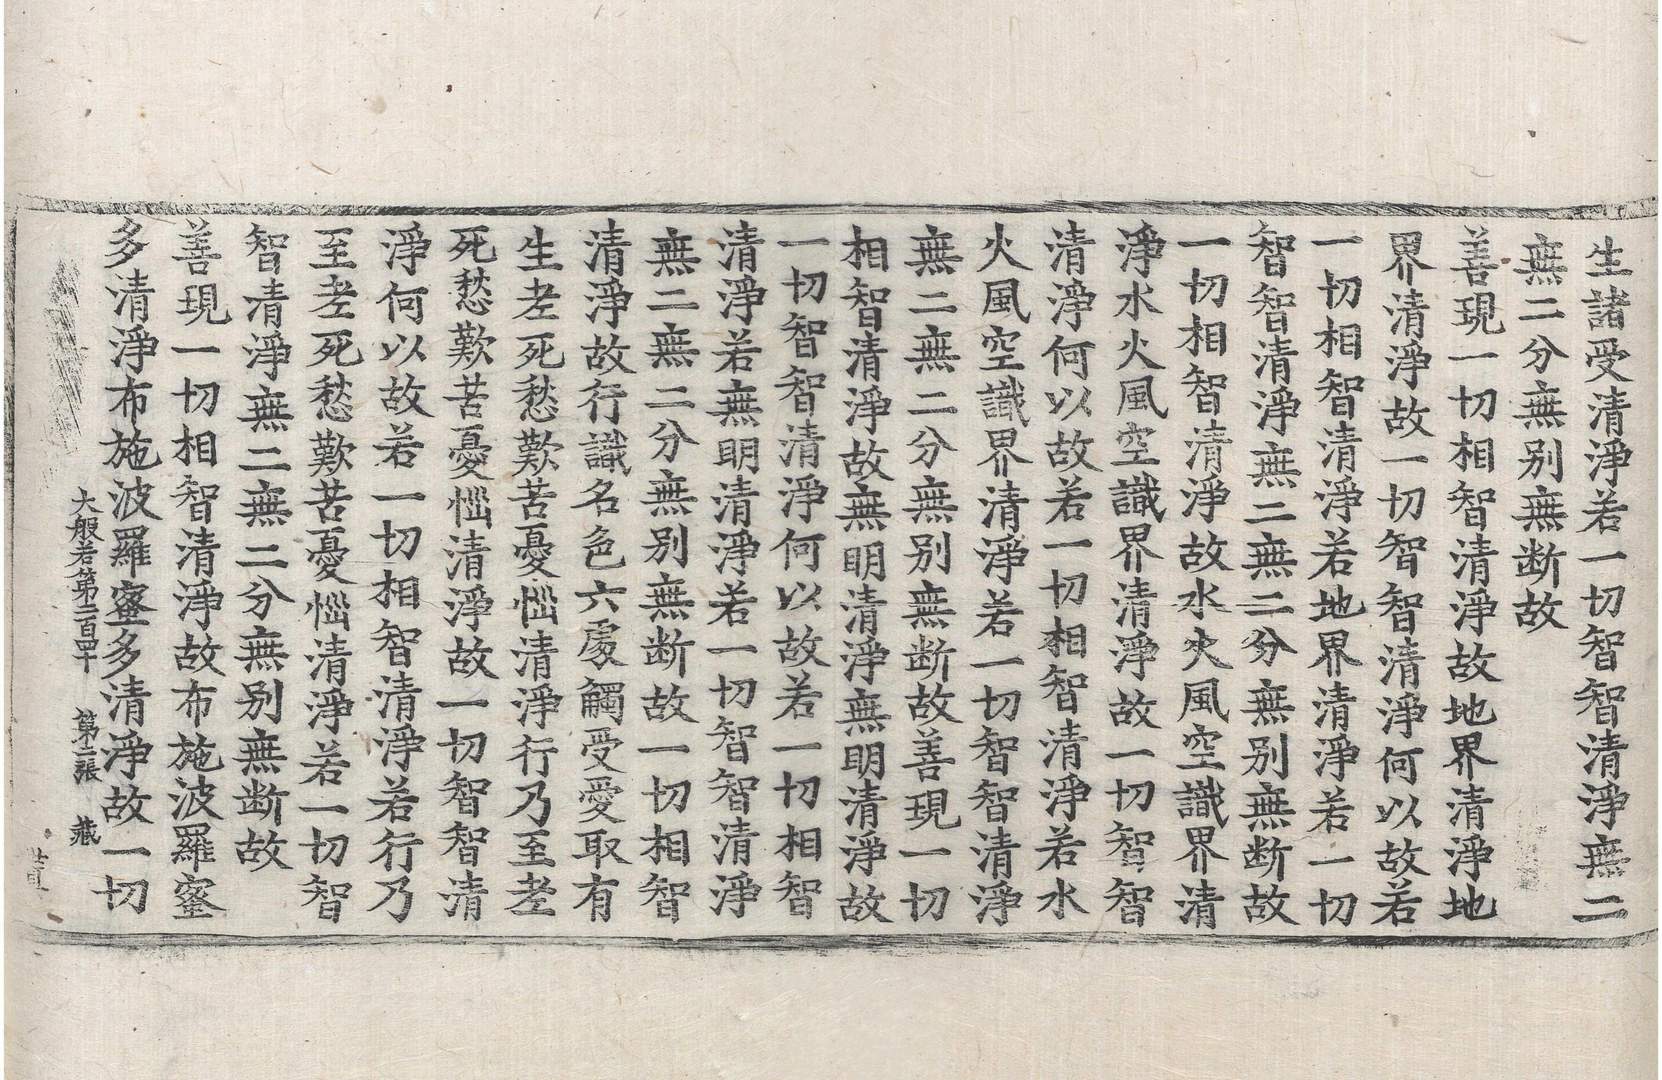 生諸受清淨若一切智智清淨無二
無二分無别無断故
善現一切相智清淨故地界清淨地
界清淨故一切智智清淨何以故若
一切相智清淨若地界清淨若一切
智智清淨無二無二分無别無断故
一切相智清淨故水火風空識界清
淨水火風空識界清淨故一切智智
清淨何以故若一切相智清淨若水
火風空識界清淨若一切智智清淨
無二無二分無别無断故善現一切
相智清淨故無明清淨無明清淨故
一切智智清淨何以故若一切相智
清淨若無明清淨若一切智智清淨
無二無二分無别無断故一切相智
清淨故行識名色六處觸受愛取有
生老死愁歎苦憂惱清淨行乃至老
死愁歎苦憂惱清淨故一切智智清
淨何以故若一切相智清淨若行乃
至老死愁歎苦憂惱清淨若一切智
智清淨無二無二分無别無断故
善現一切相智清淨故布施波羅蜜
多清淨布施波羅蜜多清淨故一切
大般若第二百四十 第二張 藏